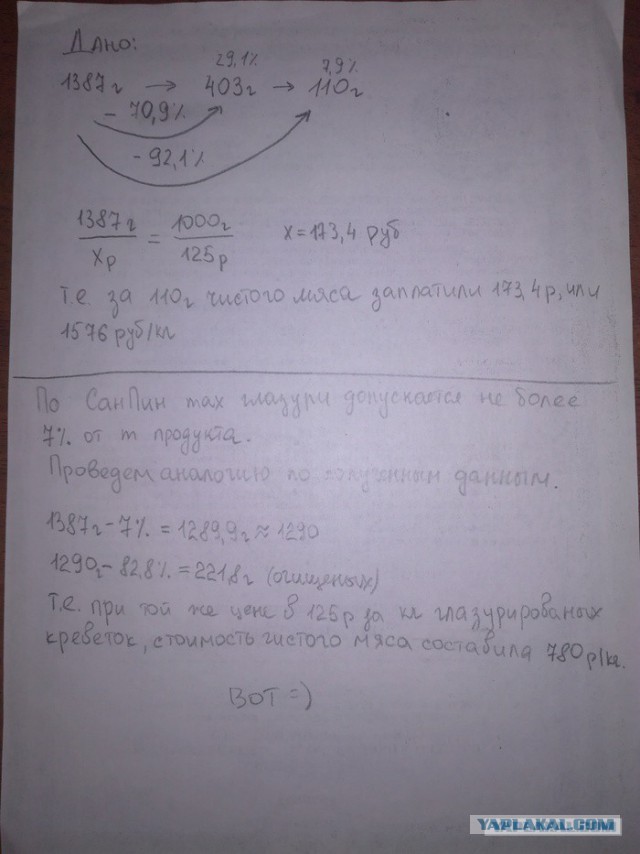 Дано:
29,1% 7,9%
1387г → 403г → 110г
- 70,9%
- 92,1%
1387г / xр = 1000г / 125р x=173,4 руб
т.е. за 110г чистого мяса заплатили 173,4р, или
1576 руб/кг
По СанПин max глазури допускается не более
7% от m продукта.
Проведем аналогию по полученным данным.
1387г-7% = 1289,9г ≈ 1290
1290г-82,8% = 221,8г (очищеных)
т.е. при той же цене в 125р за кг глазурированых
креветок, стоимость чистого мяса составила 780р/кг.
ВОТ =)
YAPLAKAL.COM